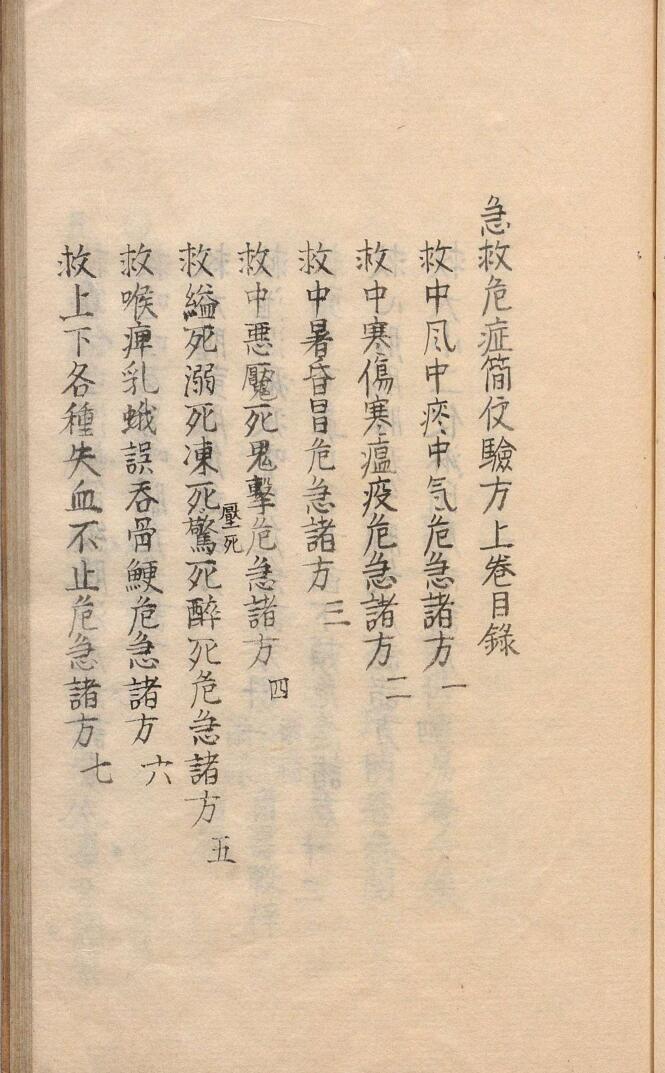 急救危症簡便驗方上卷目錄
救中风中痰中气危急諸方 一
救中寒傷寒瘟疫危急諸方 二
救中暑昏冒危急諸方 三
救中悪魘死鬼擊危急諸方 四
救縊死溺死凍死壓死驚死醉死危急諸方 五
救喉痺乳蛾誤吞骨鯁危急諸方 六
救上下各種失血不止危急諸方 七